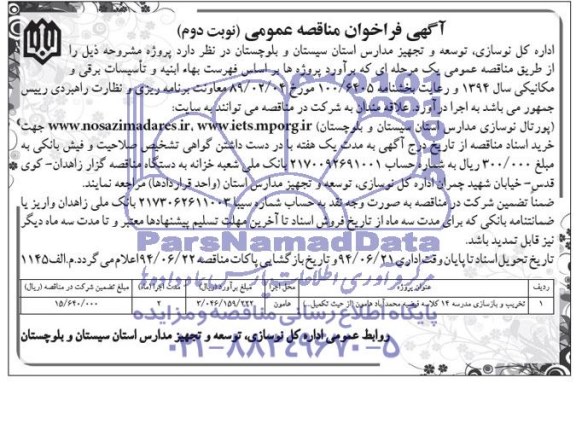 آگهی فراخوان مناقصه عمومی (نوبت دوم)
اداره کل نوسازی، توسعه و تجهیز مدارس استان سیستان و بلوچستان در نظر دارد پروژه مشروحه ذیل را
از طریق مناقصه عمومی یک مرحله ای که برآورد پروژه ها بر اساس فهرست بهاء ابنیه و تأسیسات برقی و
مکانیکی سال ۱۳۹۴ و رعایت بخشنامه ۱۰۰/۶۴۰۵ مورخ ۸۹/۰۲/۰۴ معاونت برنامه ریزی و نظارت راهبردی رییس
جمهور می باشد به اجرا درآورد. علاقه مندان به شرکت در مناقصه می توانند به سایت:
(پورتال نوسازی مدارس استان سیستان و بلوچستان) www.nosazimadares.ir, www.iets.mporg.ir جهت
خرید اسناد مناقصه از تاریخ درج آگهی به مدت یک هفته با در دست داشتن گواهی تشخیص صلاحیت و فیش بانکی به
مبلغ ۳۰۰/۰۰۰ ریال به شماره حساب ۲۱۷۰۰۹۲۶۹۱۰۰۱ بانک ملی شعبه خزانه به دستگاه مناقصه گزار زاهدان- کوی
قدس- خیابان شهید چمران اداره کل نوسازی، توسعه و تجهیز مدارس استان (واحد قراردادها) مراجعه نمایند.
ضمنا تضمین شرکت در مناقصه به صورت وجه نقد به حساب شماره سیبا ۲۱۷۳۰۶۲۶۱۱۰۰۳ بانک ملی زاهدان واریز یا
ضمانتنامه بانکی که برای مدت سه ماه از تاریخ فروش اسناد تا آخرین مهلت تسلیم پیشنهادها معتبر و تا مدت سه ماه دیگر
نیز قابل تمدید باشد.
تاریخ تحویل اسناد تا پایان وقت اداری ۹۴/۰۶/۲۱ و تاریخ بازگشایی پاکات مناقصه ۹۴/۰۶/۲۲ اعلام می گردد. م.الف ۱۱۴۵
ردیف عنوان پروژه محل اجرا مبلغ برآورد (ریال) مدت اجرا (ماه) مبلغ تضمین شرکت در مناقصه (ریال)
۱ تخریب و بازسازی مدرسه ۱۲ کلاسه محمدآباد هامون (از حیث تکمیل...) هامون ۲/۰۴۶/۱۵۹/۲۲۲ ۲ ۱۵/۶۴۰/۰۰۰
روابط عمومی اداره کل نوسازی، توسعه و تجهیز مدارس استان سیستان و بلوچستان
ParsNamadData
پایگاه اطلاع رسانی مناقصه و مزایده
۰۲۱-۸۸۳۴۹۶۷۰-۵